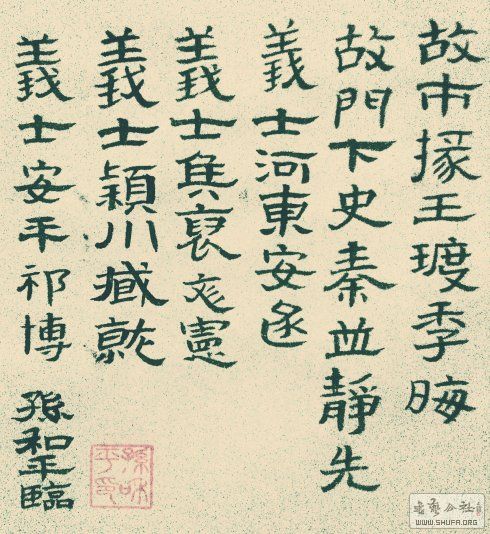 故市掾王季晦
故門下史秦並靜先
義士河東安邑
義士侯褒文憲
義士穎川臧就
義士安平祁博
孫和平臨
孫和平印
書藝公社
WWW.SHUFA.ORG